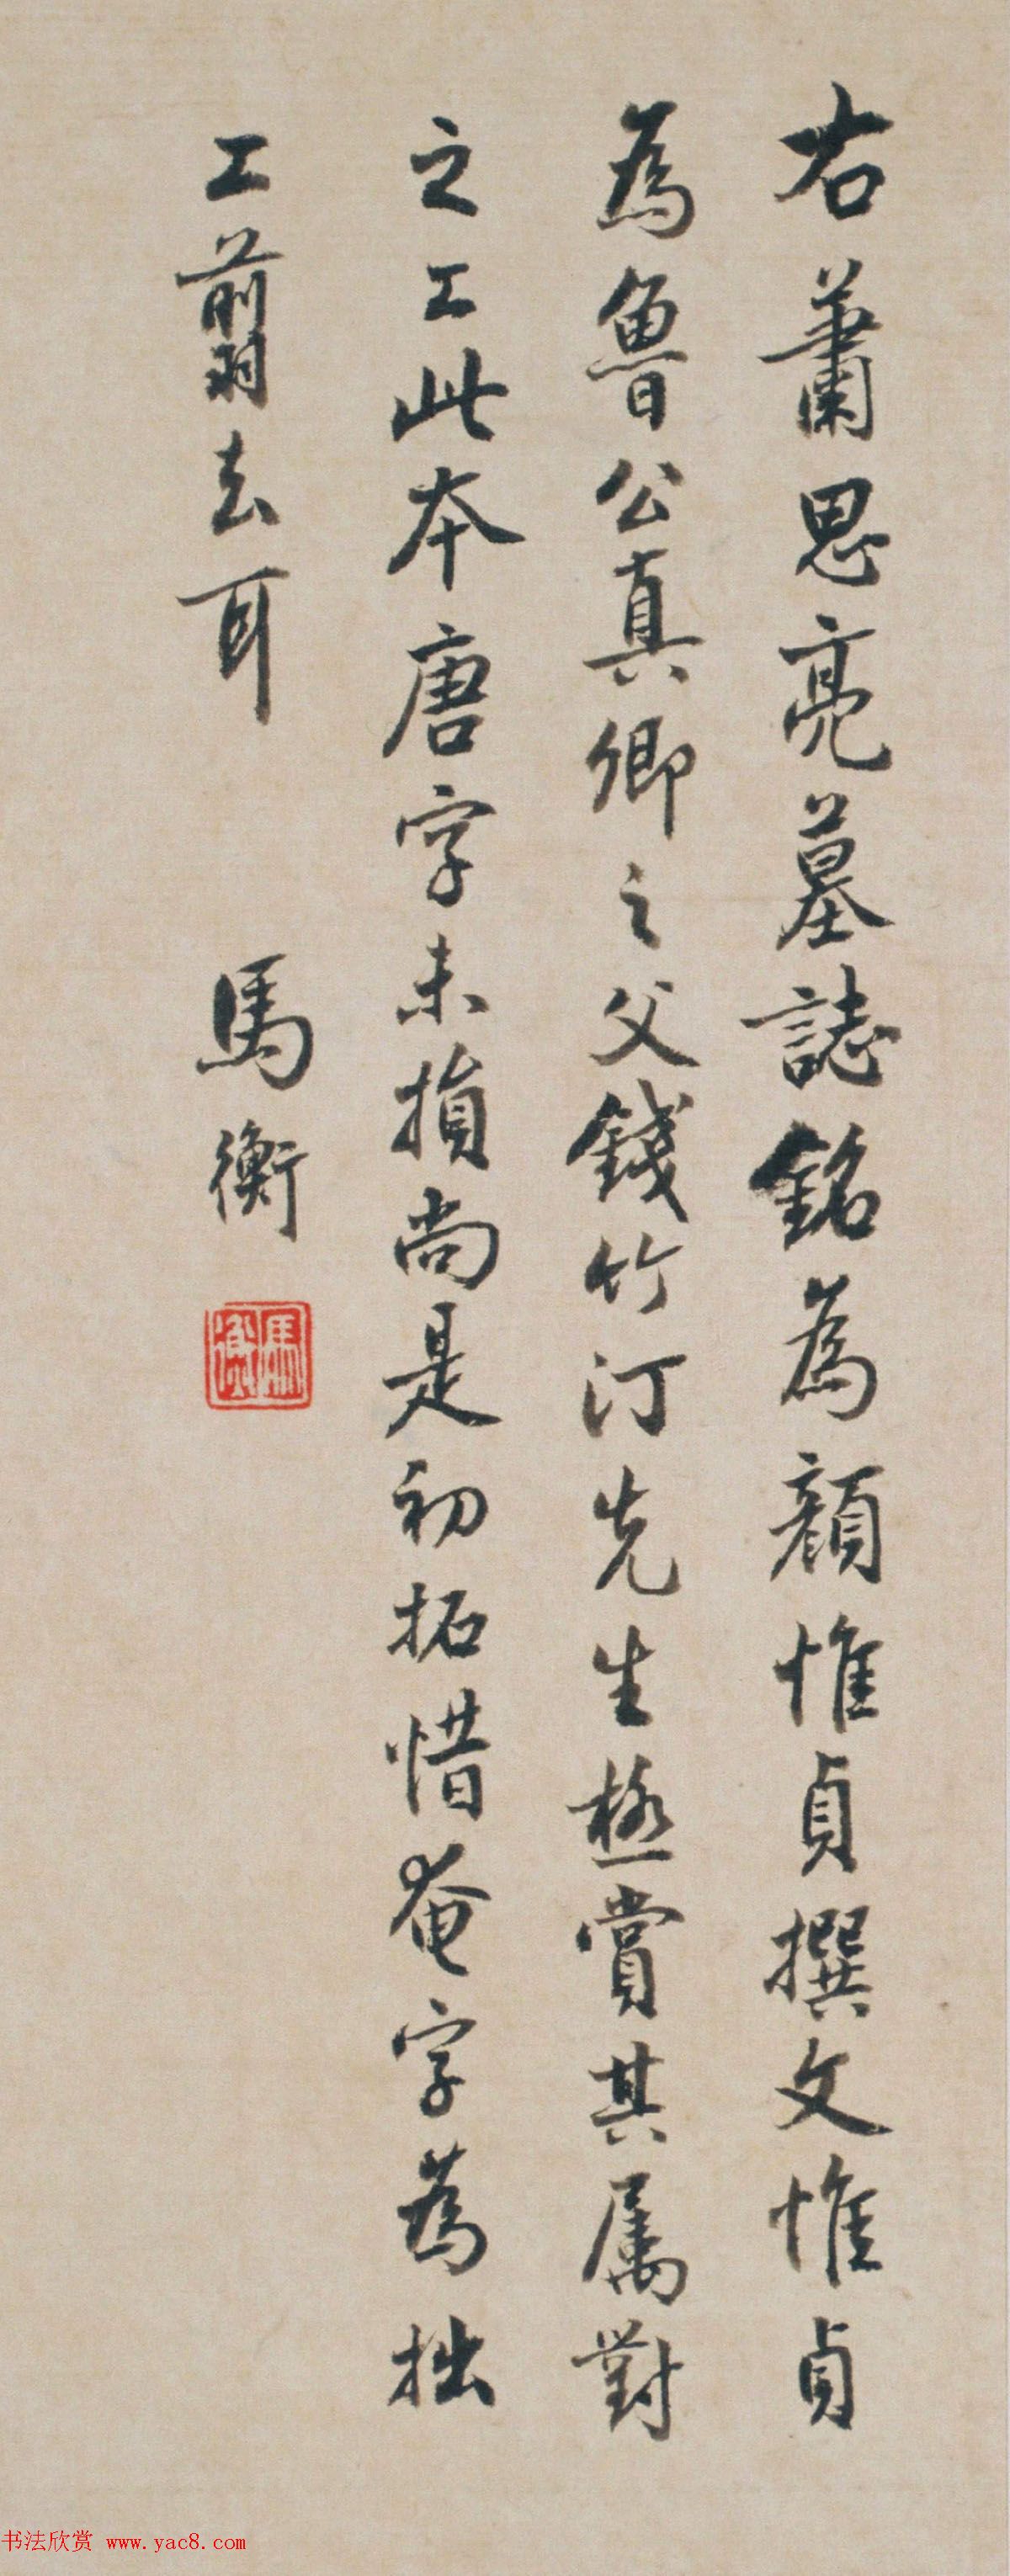 右蕭思亮墓誌銘為顏惟貞撰文惟貞
為魯公真卿之父錢竹汀先生極賞其屬對
之工此本唐字未損尚是初拓惜奄字為拙
工翦去耳
馬衡
馬衡
书法欣赏 www.yac8.com